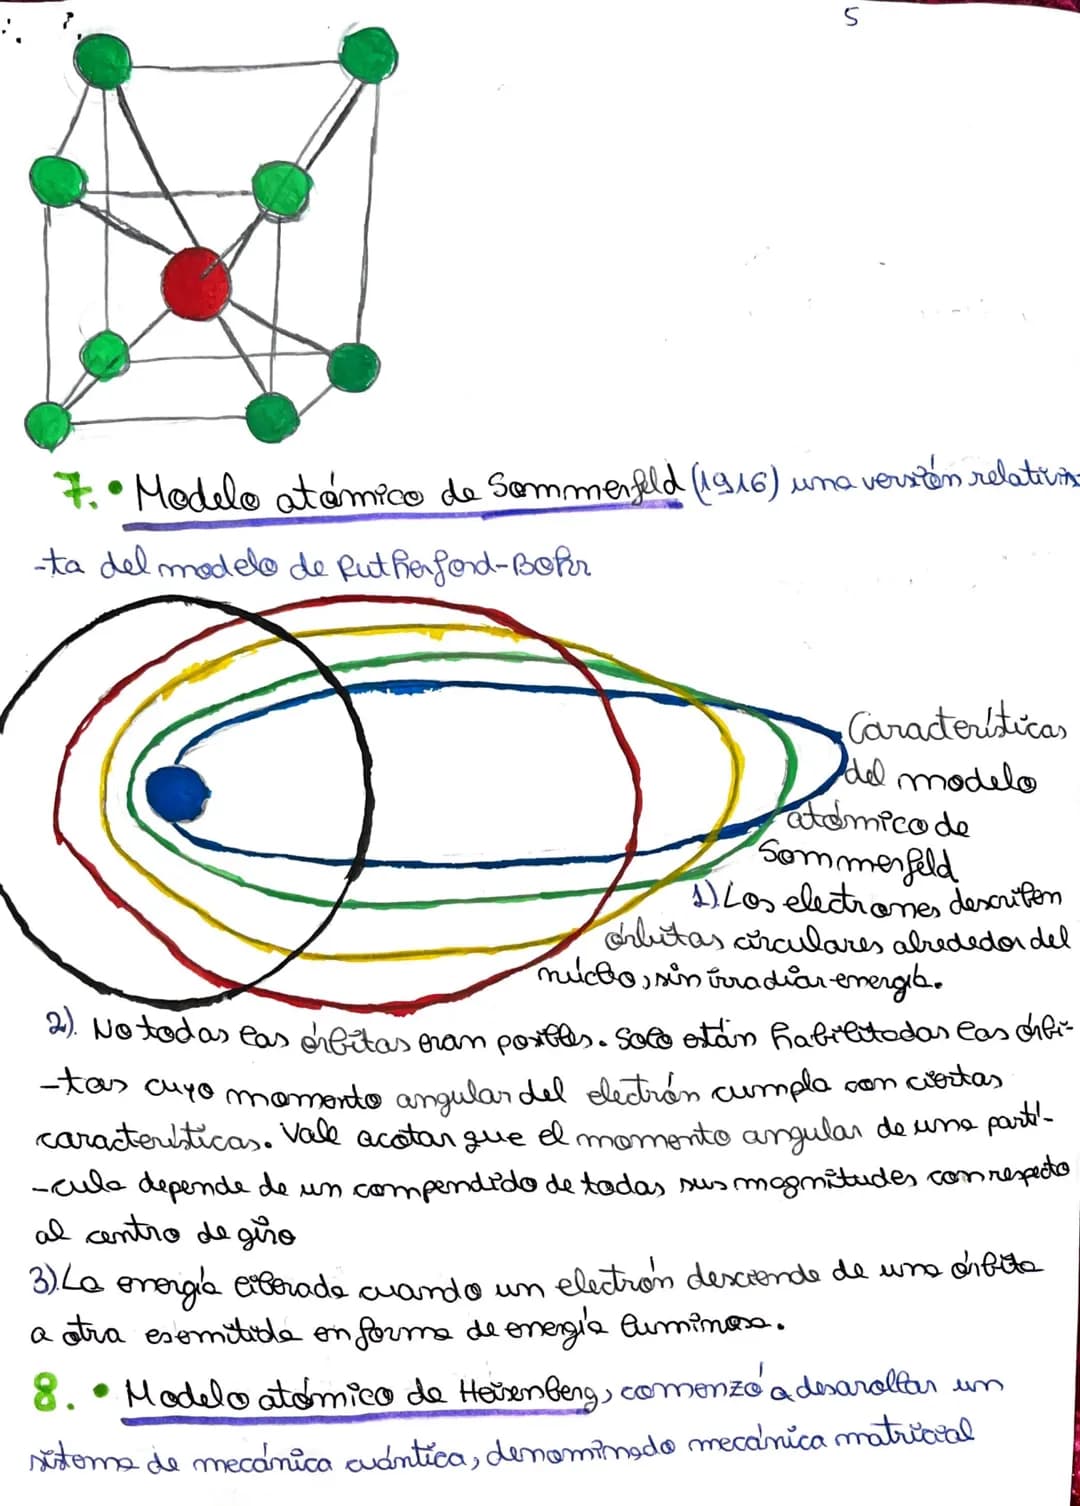 5
7. • Modelo atómico de Sommerfeld (1916) una versión relativis
-ta del modelo de Rutherford-Bohr
Características
del modelo
atómico de
Sommerfeld
1) Los electrones describen
órbitas circulares alrededor del
núcleo, sin irradiar energía.
2). No todas las órbitas eran posibles. Solo están habilitadas las órbi-
-tas cuyo momento angular del electrón cumpla con ciertas
características. Vale acotar que el momento angular de una partí-
-cula depende de un compendido de todas sus magnitudes con respecto
al centro de giro
3). La energía liberada cuando un electrón desciende de una órbita
a otra es emitida en forma de energía luminosa.
8. • Modelo atómico de Heisenberg, comenzó a desarollar un
sistema de mecánica cuántica, denominado mecánica matricial